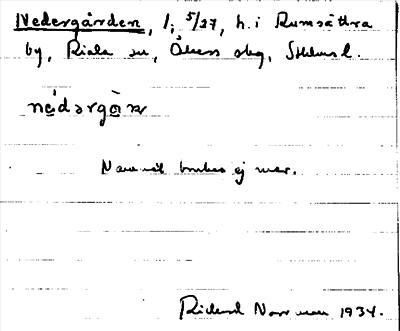 Nedergården, l. 5/27, h. i Rumsättra
by, Riala sn, Åkers skg, Sthlms l.
nédərgɑ̀ɳ
Namnet brukas ej mer.
Rickard Norrman 1934.